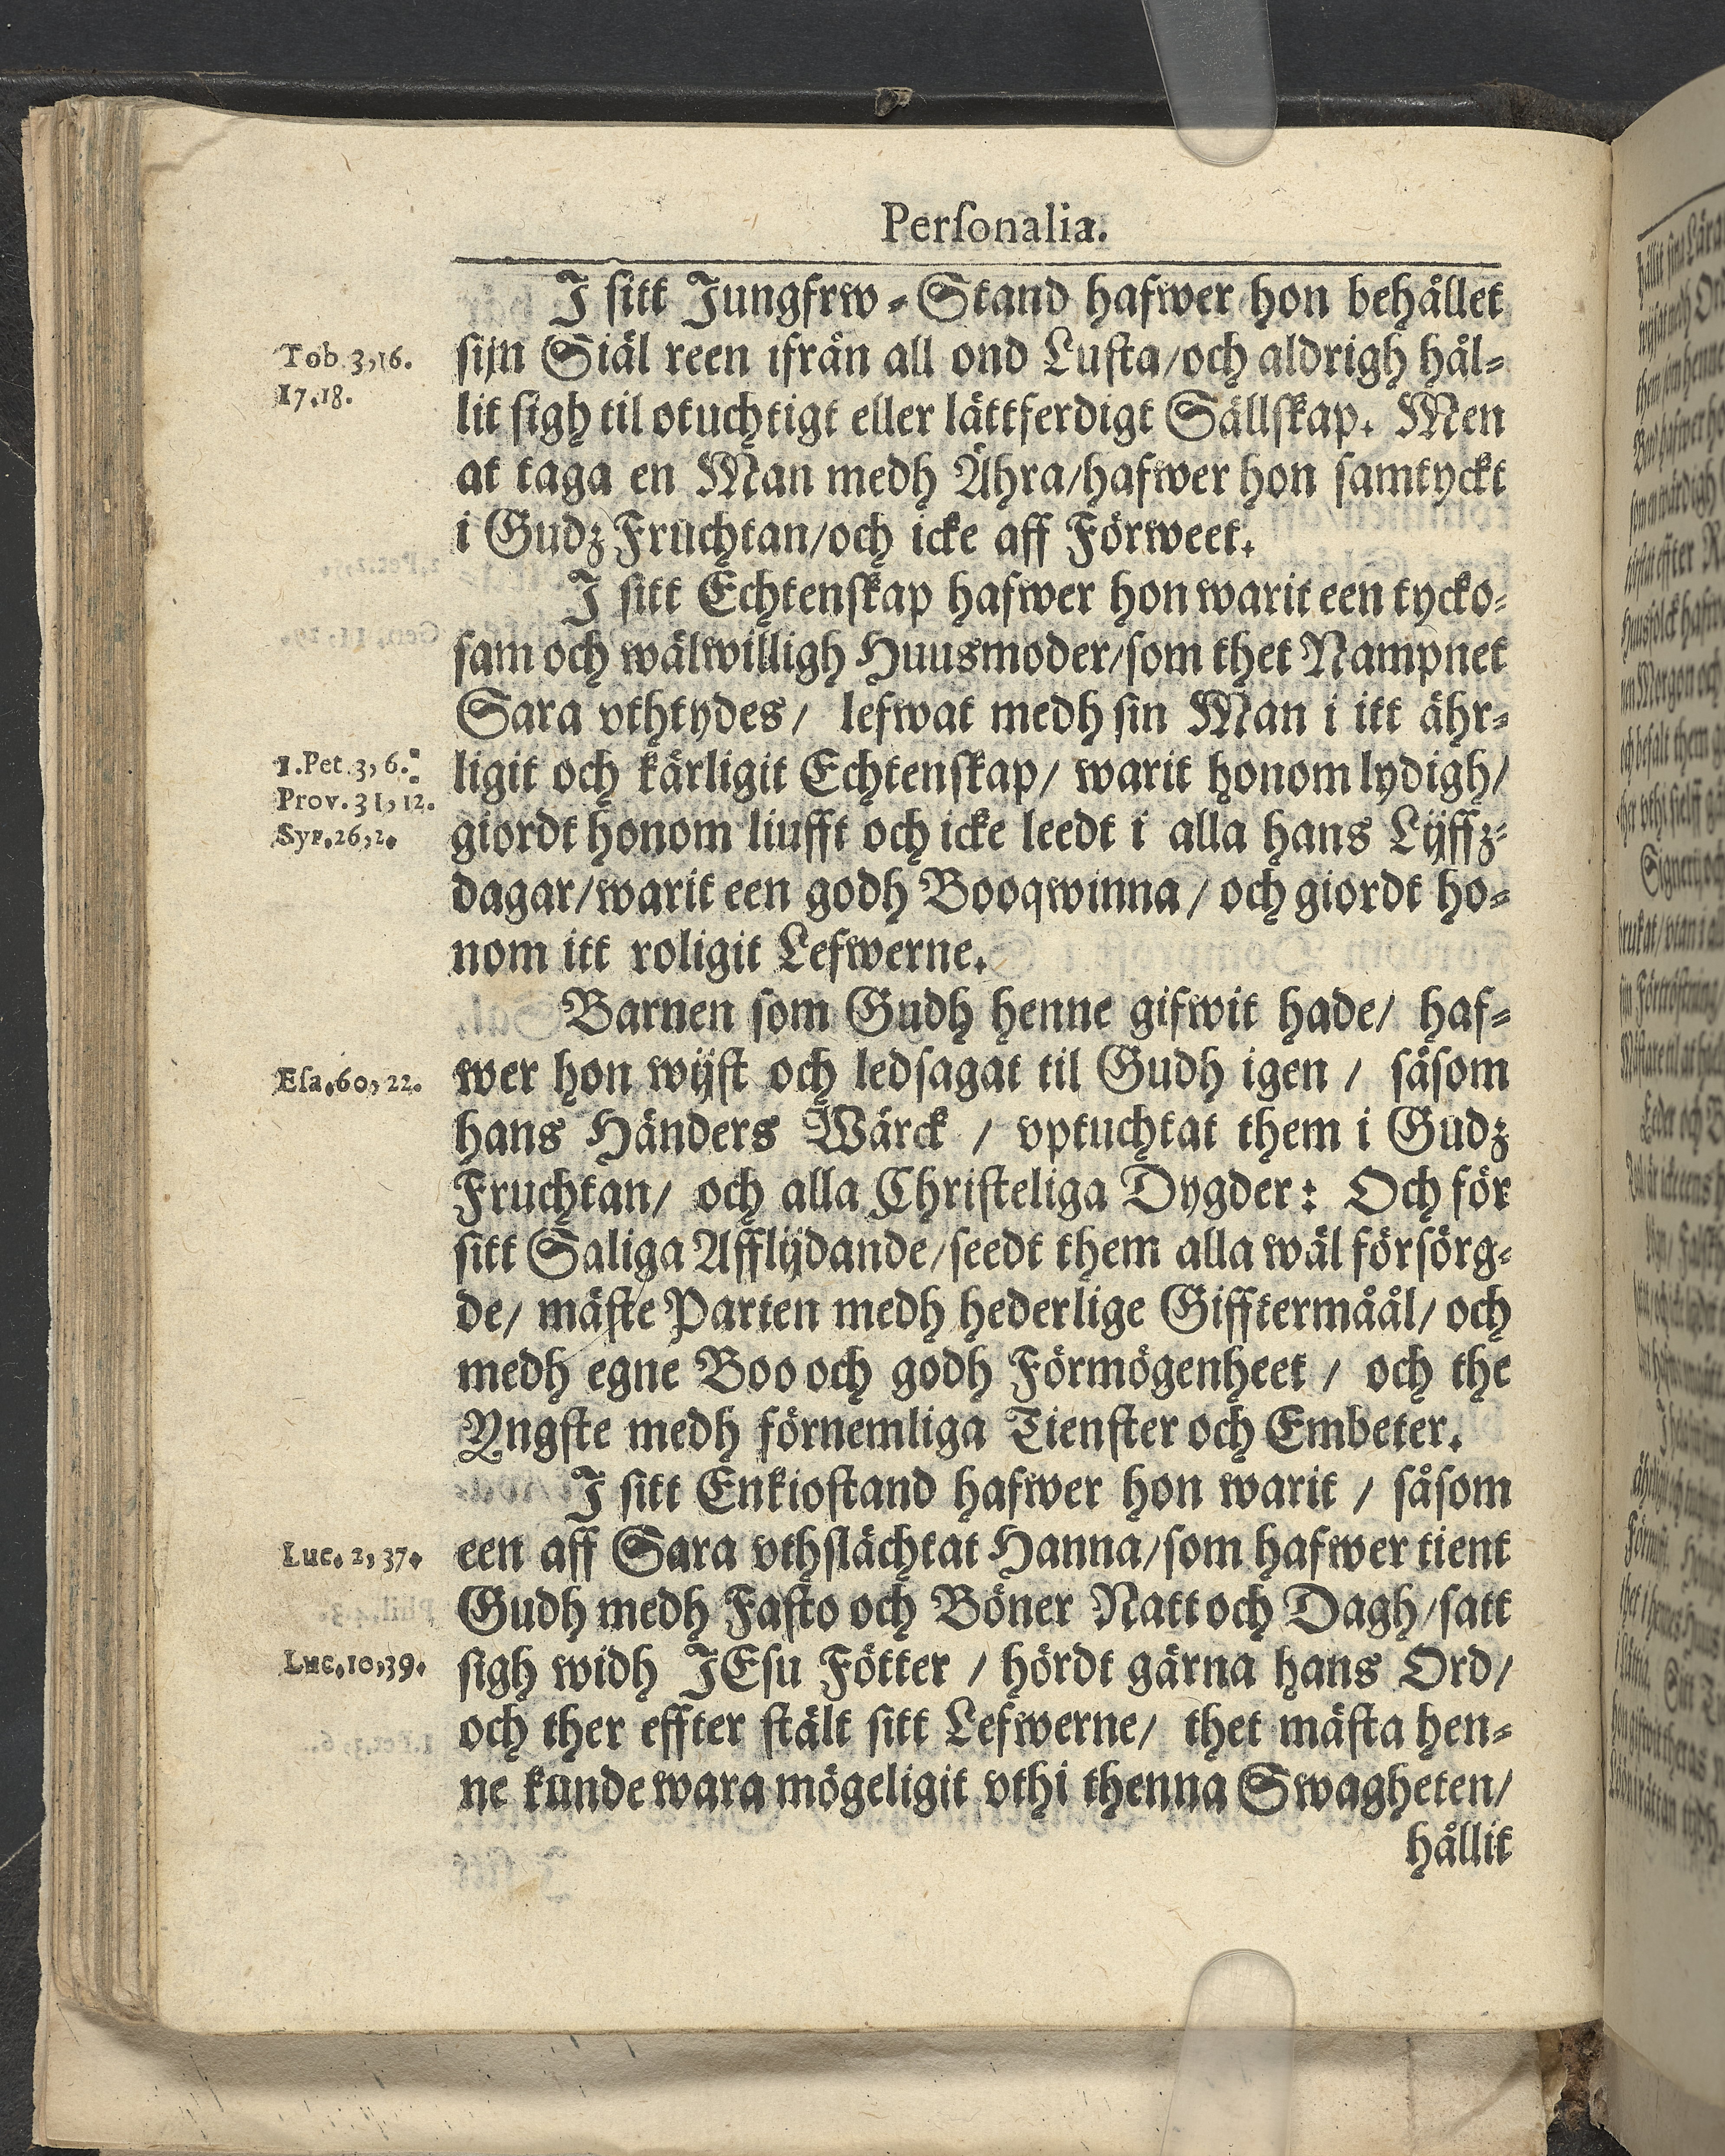 Personalia.
I sitt Jungfrw-Stand hafwer hon behållet
Tob. 3,16.
17.18.
sijn Siäl reen ifrån all ond Lusta/och aldrigh hål-
lit sigh til otuchtigt eller lättferdigt Sällskap. Men
at taga en Man medh Ähra/hafwer hon samtyckt
i Gudz Fruchtan/och icke aff Förweet.
I sitt Echtenskap hafwer hon warit een tycko-
sam och wälwilligh Huusmoder/som thet Nampnet
Sara vthtydes/ lefwat medh sin Man i itt ähr-
1.Pet.3,6.
Prov.31,12.
Syr.26,2.
ligit och kärligit Echtenskap/ warit honom lydigh/
giordt honom liufft och icke leedt i alla hans Lijffz-
dagar/warit een godh Booqwinna/ och giordt ho-
nom itt roligit Lefwerne.
Barnen som Gudh henne gifwit hade/ haf-
Esa.60,22.
wer hon wijst och ledsagat til Gudh igen / såsom
hans Händers Wärck / vptuchtat them i Gudz
Fruchtan/ och alla Christeliga Dygder: Och för
sitt Saliga Afflijdande/seedt them alla wäl försörg-
de/ mäste Parten medh hederlige Gifftermåål/ och
medh egne Boo och godh Förmögenheet / och the
Yngste medh förnemliga Tienster och Embeter.
I sitt Enkiostand hafwer hon warit / såsom
Luc. 2,37.
een aff Sara vthslächtat Hanna/som hafwer tient
Gudh medh Fasto och Böner Natt och Dagh/satt
Luc.10,39.
sigh widh JEsu Fötter / hördt gärna hans Ord/
och ther effter stält sitt Lefwerne/ thet mästa hen-
ne kunde wara mögeligit vthi thenna Swagheten/
hållit